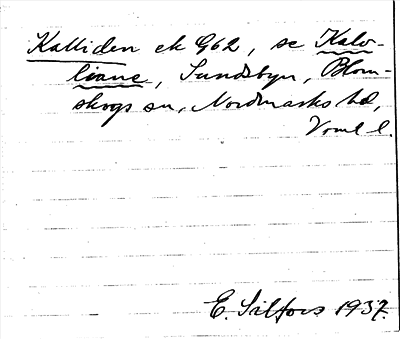 Kalliden ek G62, se Kalv-
liane, Sundsbyn, Blom-
skogs sn, Nordmarks hd,
Vrml l.
E. Sälfors 1937.